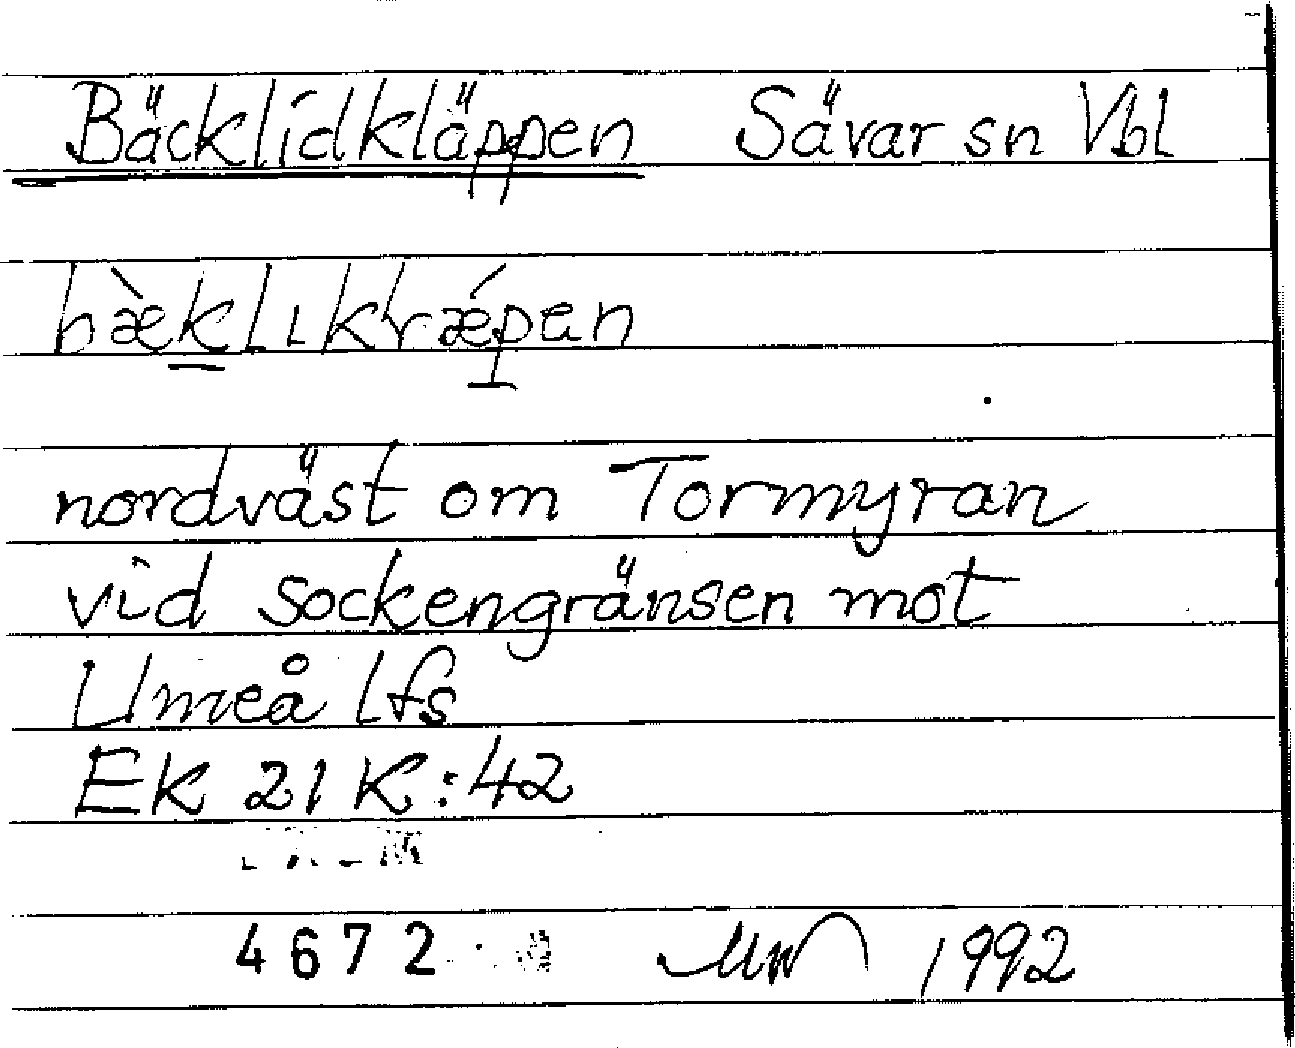 Bäcklidkläppen Sävar sn Vbl
bæ̀k̲lıkrǽ̲pen
nordväst om Tormyran
vid sockengränsen mot
Umeå lfs
EK 21 K:42
4672 1992